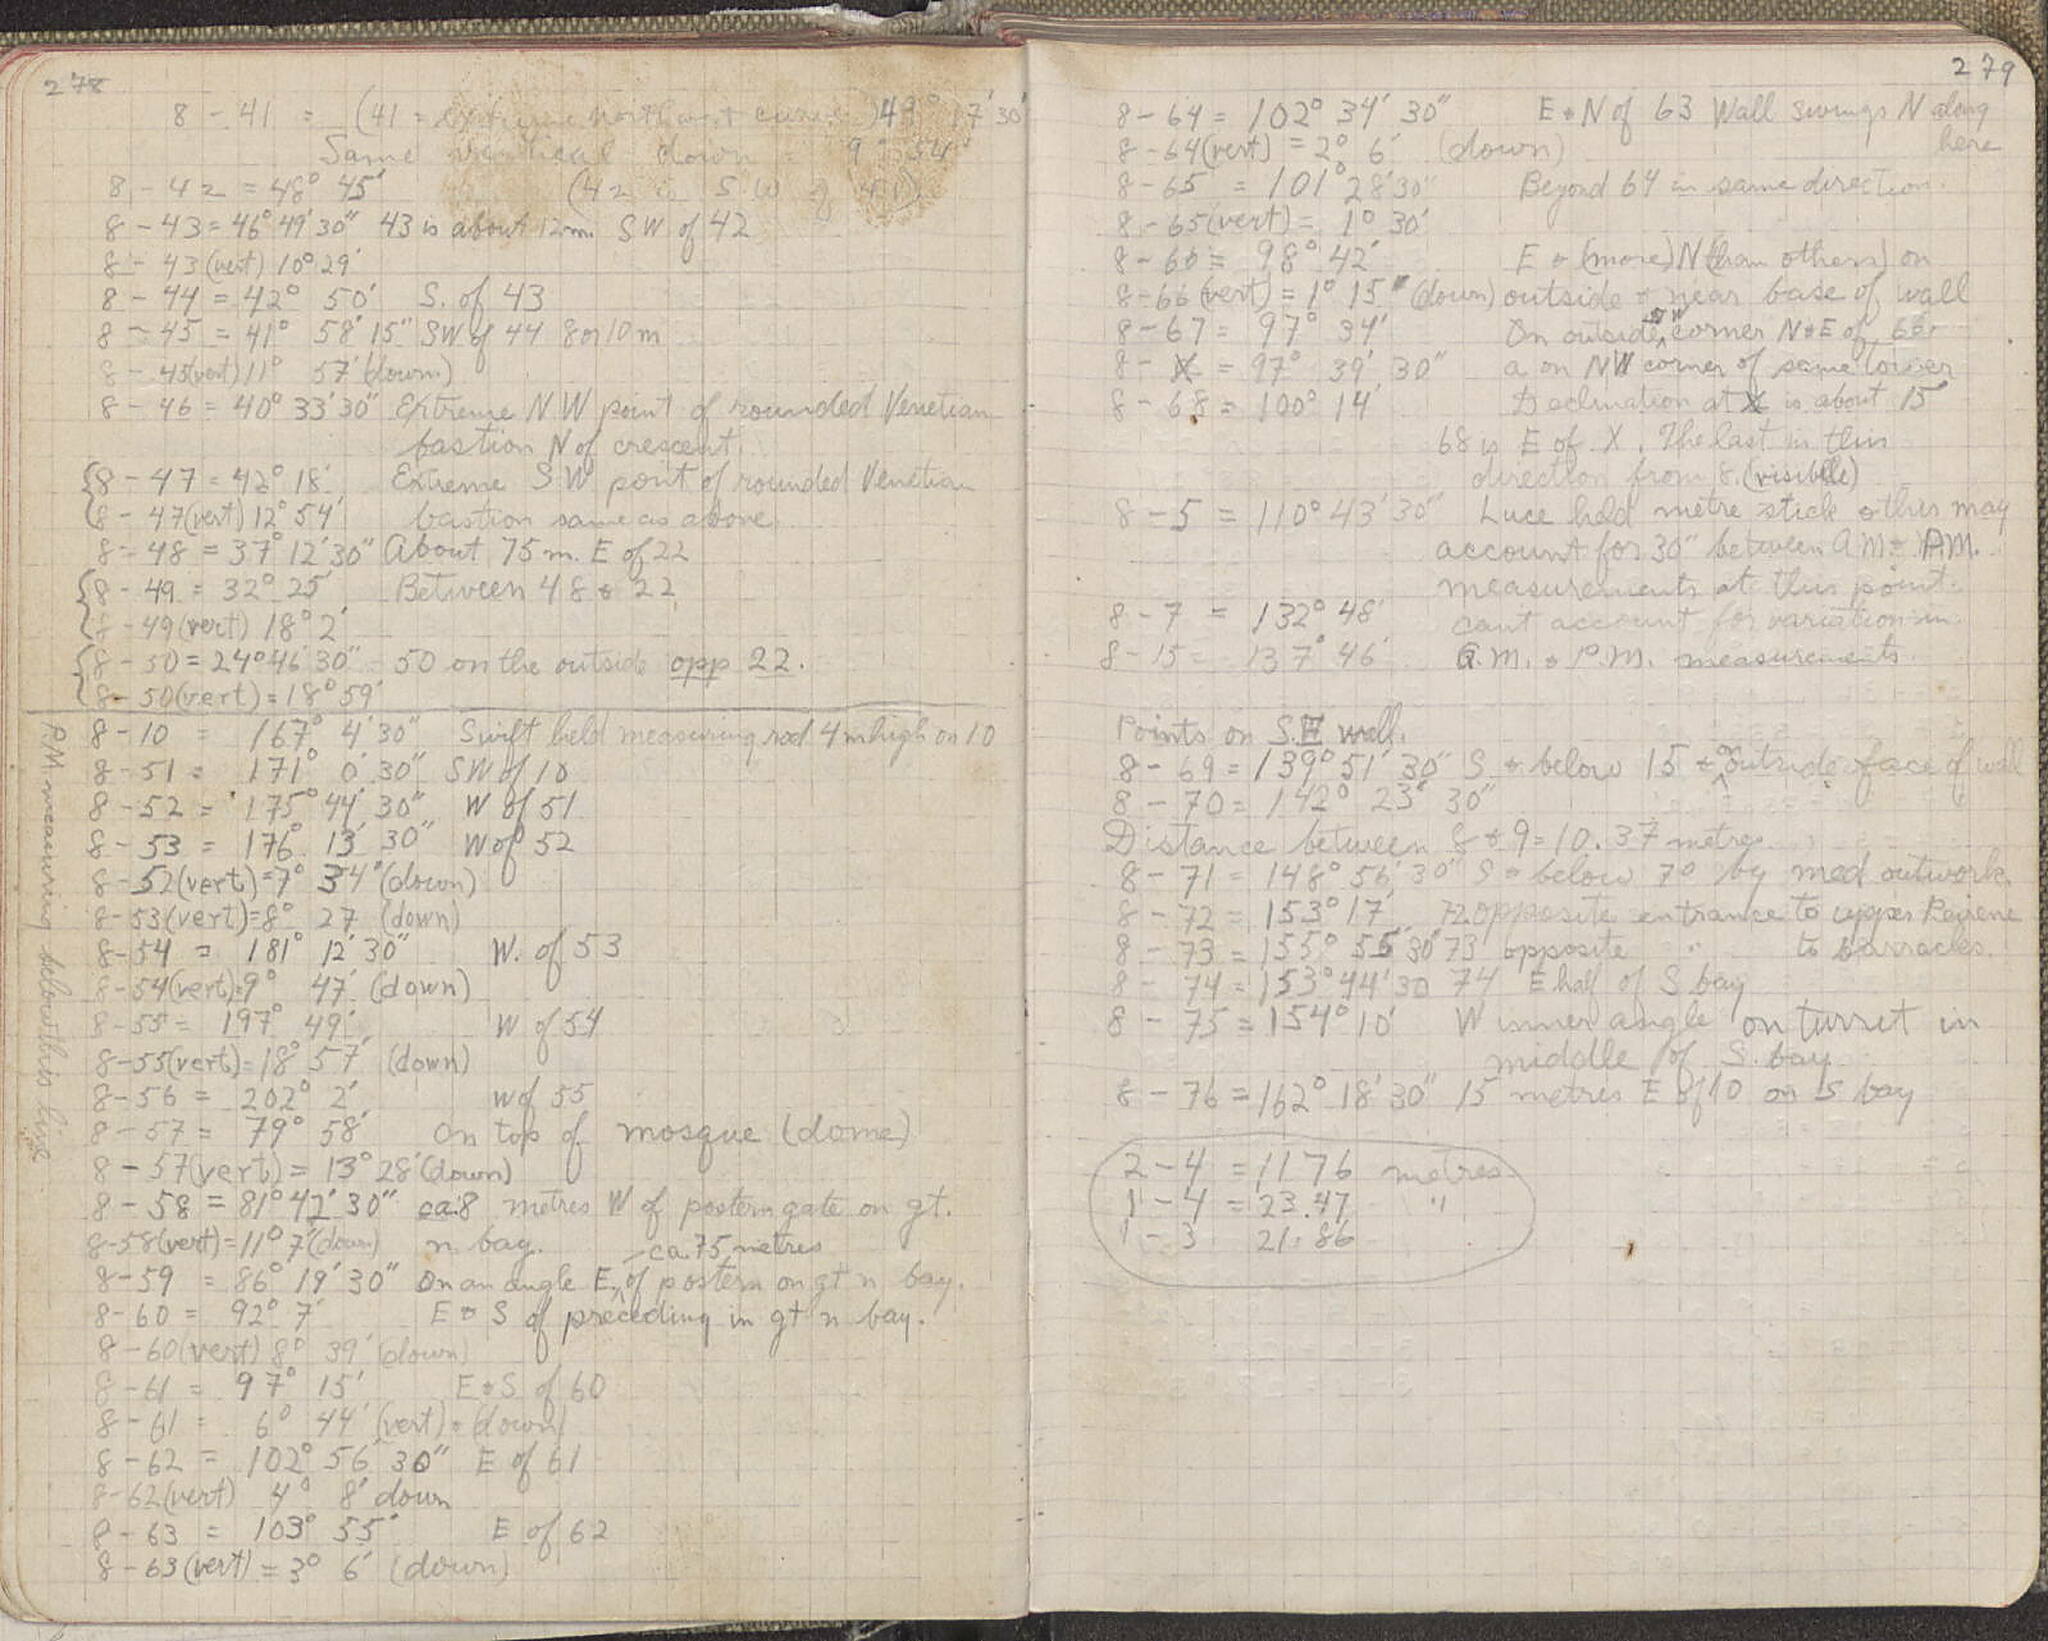 278
8 - 41 = (41 = extreme northwest curve) 49° 17' 30
Same vertical down = 9° 54'
8 - 42 = 48° 45' (42 is S W of 41)
8 - 43 = 46° 49' 30" 43 is about 12m. SW of 42
8 - 43 (vert) 10° 29'
8 - 44 = 42° 50' S. of 43
8 - 45 = 41° 58' 15" SW of 44 8 or 10 m
8 - 45(vert) 11° 57' (down)
8 - 46 = 40° 33' 30" Extreme N W point of rounded Venetian
bastion N of crescent.
8 - 47 = 42° 18' Extreme S W point of rounded Venetian
8 - 47(vert) 12° 54' bastion same as above
8 - 48 = 37° 12' 30" About 75 m. E of 22
8 - 49 = 32° 25' Between 48 & 22
8 - 49(vert) 18° 2'
8 - 50 = 24° 46' 30" 50 on the outside opp 22.
8 - 50(vert) = 18° 59'
P.M. measuring below this line
8 - 10 = 167° 4' 30" Swift held measuring rod 4 m high on 10
8 - 51 = 171° 0' 30" SW of 10
8 - 52 = 175° 44' 30" W of 51
8 - 53 = 176° 13' 30" W of 52
8 - 52(vert) = 7° 34' (down)
8 - 53(vert) = 8° 27 (down)
8 - 54 = 181° 12' 30" W. of 53
8 - 54(vert) = 9° 47' (down)
8 - 55 = 197° 49' W of 54
8 - 55(vert) = 18° 57' (down)
8 - 56 = 202° 2' W of 55
8 - 57 = 79° 58' On top of mosque (dome)
8 - 57(vert) = 13° 28' (down)
8 - 58 = 81° 42' 30" ca. 8 metres W of postern gate on gt.
8 - 58(vert) = 11° 7' (down) n. bay.
ca. 75 metres
8 - 59 = 86° 19' 30" On an angle E. of postern on gt n bay.
8 - 60 = 92° 7' E & S of preceding in gt n bay.
8 - 60(vert) 8° 39' (down)
8 - 61 = 97° 15' E & S of 60
8 - 61 = 6° 44' (vert) & (down)
8 - 62 = 102° 56' 30" E of 61
8 - 62(vert) 4° 8' down
8 - 63 = 103° 55' E of 62
8 - 63(vert) = 3° 6' (down)
279
8 - 64 = 102° 34' 30" E & N of 63 Wall swings N along
8 - 64(vert) = 2° 6' (down) here
8 - 65 = 101° 28' 30" Beyond 64 in same direction.
8 - 65(vert) = 1° 30'
8 - 66 = 98° 42' E & (more) N (than others) on
8 - 66(vert) = 1° 15' (down) outside & near base of wall
8 - 67 = 97° 34' On outside SW corner N & E of 66
8 - X = 97° 39' 30" a on NW corner of same tower
8 - 68 = 100° 14' Declination at X is about 15'
68 is E of X. The last in this
direction from 8. (visible)
8 - 5 = 110° 43' 30" Luce held metre stick & this may
account for 30" between A.M. & P.M.
measurements at this point.
8 - 7 = 132° 48' cant account for variation in
8 - 15 = 137° 46' A.M. & P.M. measurements.
Points on S.E wall.
8 - 69 = 139° 51' 30" S & below 15 & on outside face of wall
8 - 70 = 142° 23' 30"
Distance between 8 & 9 = 10.37 metres
8 - 71 = 148° 56' 30" S & below 70 by med outwork.
8 - 72 = 153° 17' 72 opposite entrance to upper Peirene
8 - 73 = 155° 55' 30" 73 opposite " to barracks.
8 - 74 = 153° 44' 30 74 E half of S bay
8 - 75 = 154° 10' W inner angle on turret in
middle of S. bay
8 - 76 = 162° 18' 30" 15 metres E of 10 on S bay
2 - 4 = 11.76 metres
1 - 4 = 23.47 "
1 - 3 21.86